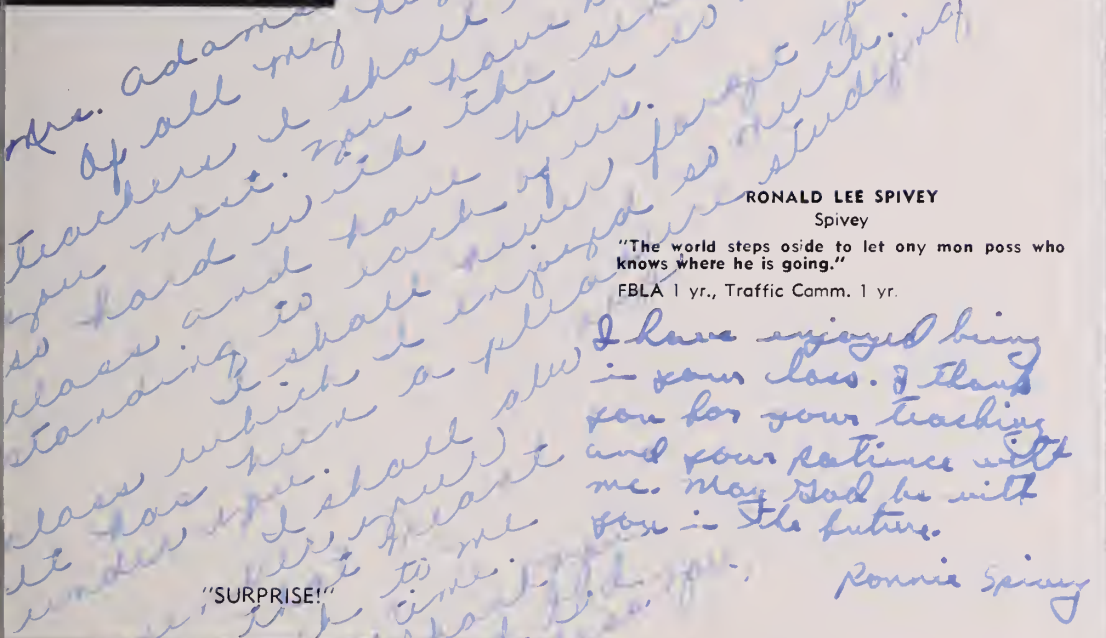 Mrs. Adams
Of all my
teachers I shall
you most. You have
so hard with the
class and have been so
standing to each of us.
I shall never forget
class which I enjoyed so much.
it has been a pleasure studying
under you.
I shall
meant
to me
time.
you.
"SURPRISE!"
RONALD LEE SPIVEY
Spivey
"The world steps oside to let ony mon poss who
knows where he is going."
FBLA 1 yr., Traffic Comm. 1 yr.
I have enjoyed being
in your class. I thank
you for your teaching
and your patience with
me. May God be with
you in the future.
Ronnie Spivey